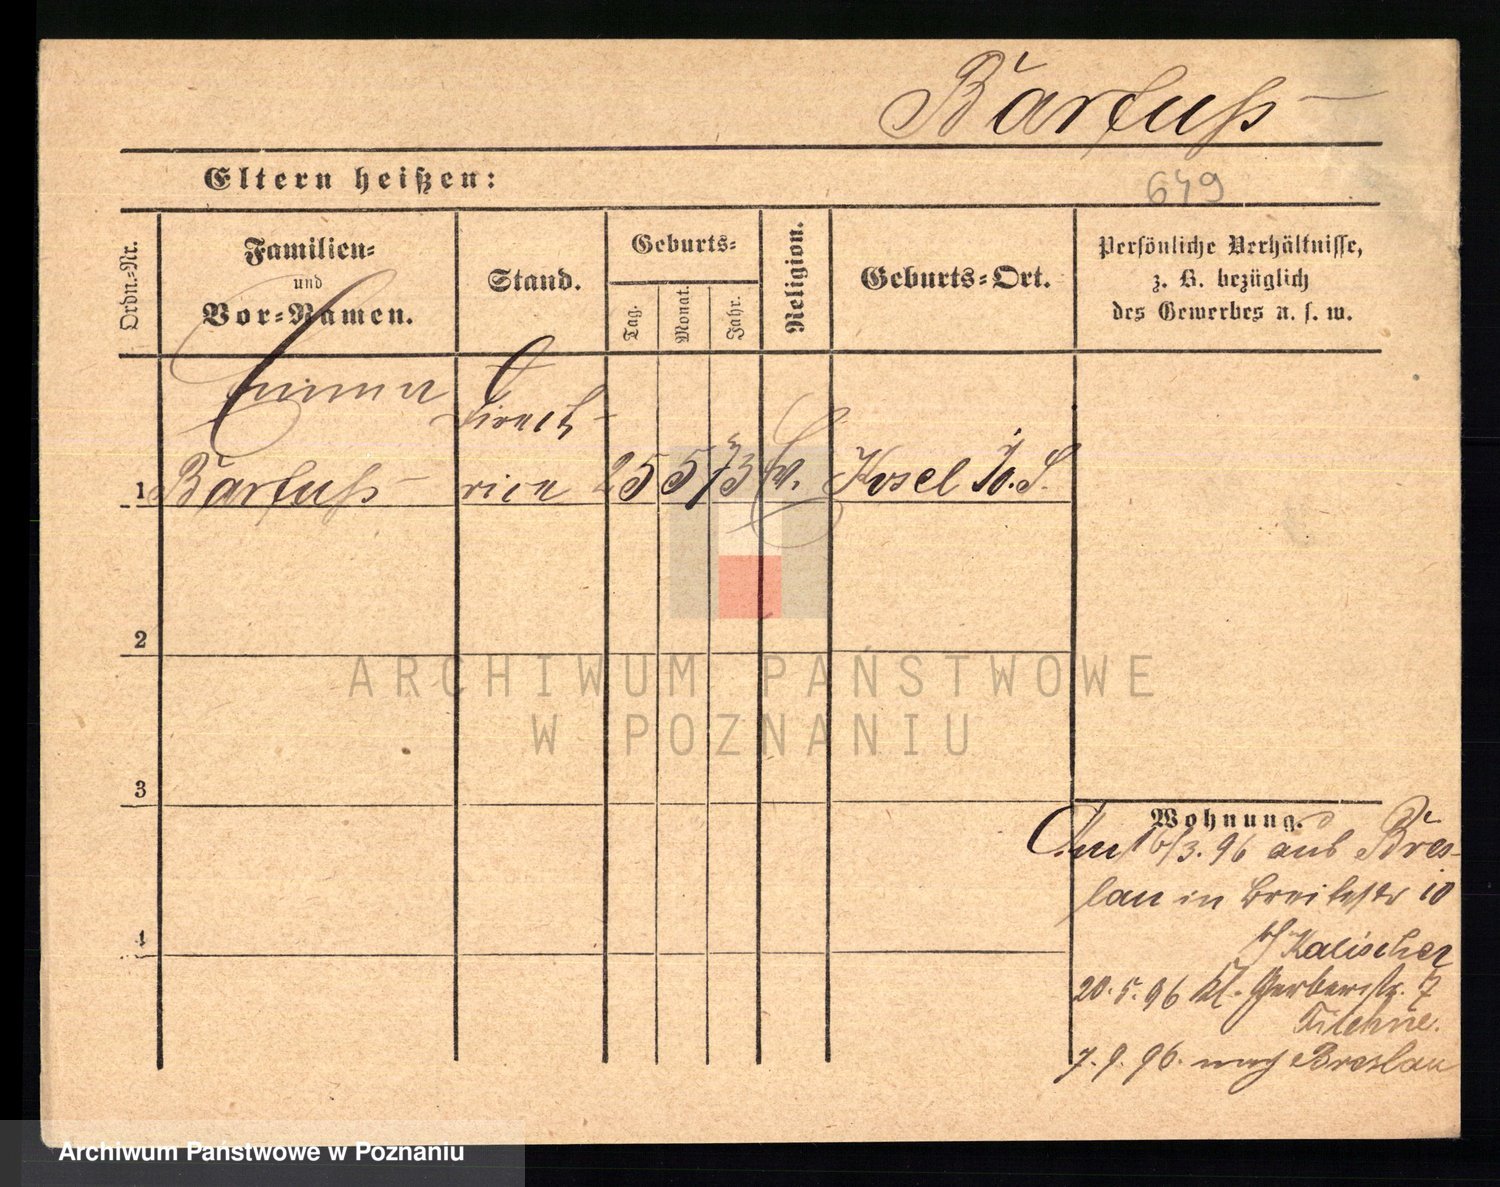 Barfuß
Eltern heißen:
649
Ordn.-Nr.
Familien-
und
Vor-Namen.
Stand.
Geburts-
Tag.
Monat.
Jahr.
Religion.
Geburts-Ort.
Persönliche Verhältnisse,
z. B. bezüglich
des Gewerbes u. s. w.
Emma
Direct-
1 Barfuß rice 25 5 73 Ev. Kosel O. S.
2
ARCHIWUM PAŃSTWOWE
W POZNANIU
3
Wohnung.
Am 16/3. 96 aus Bres-
lau in Breitestr 10
b/ Kalischer
4
20. 5. 96 Kl. Gerberstr. 7
Filehne.
7. 9. 96. nach Breslau
Archiwum Państwowe w Poznaniu